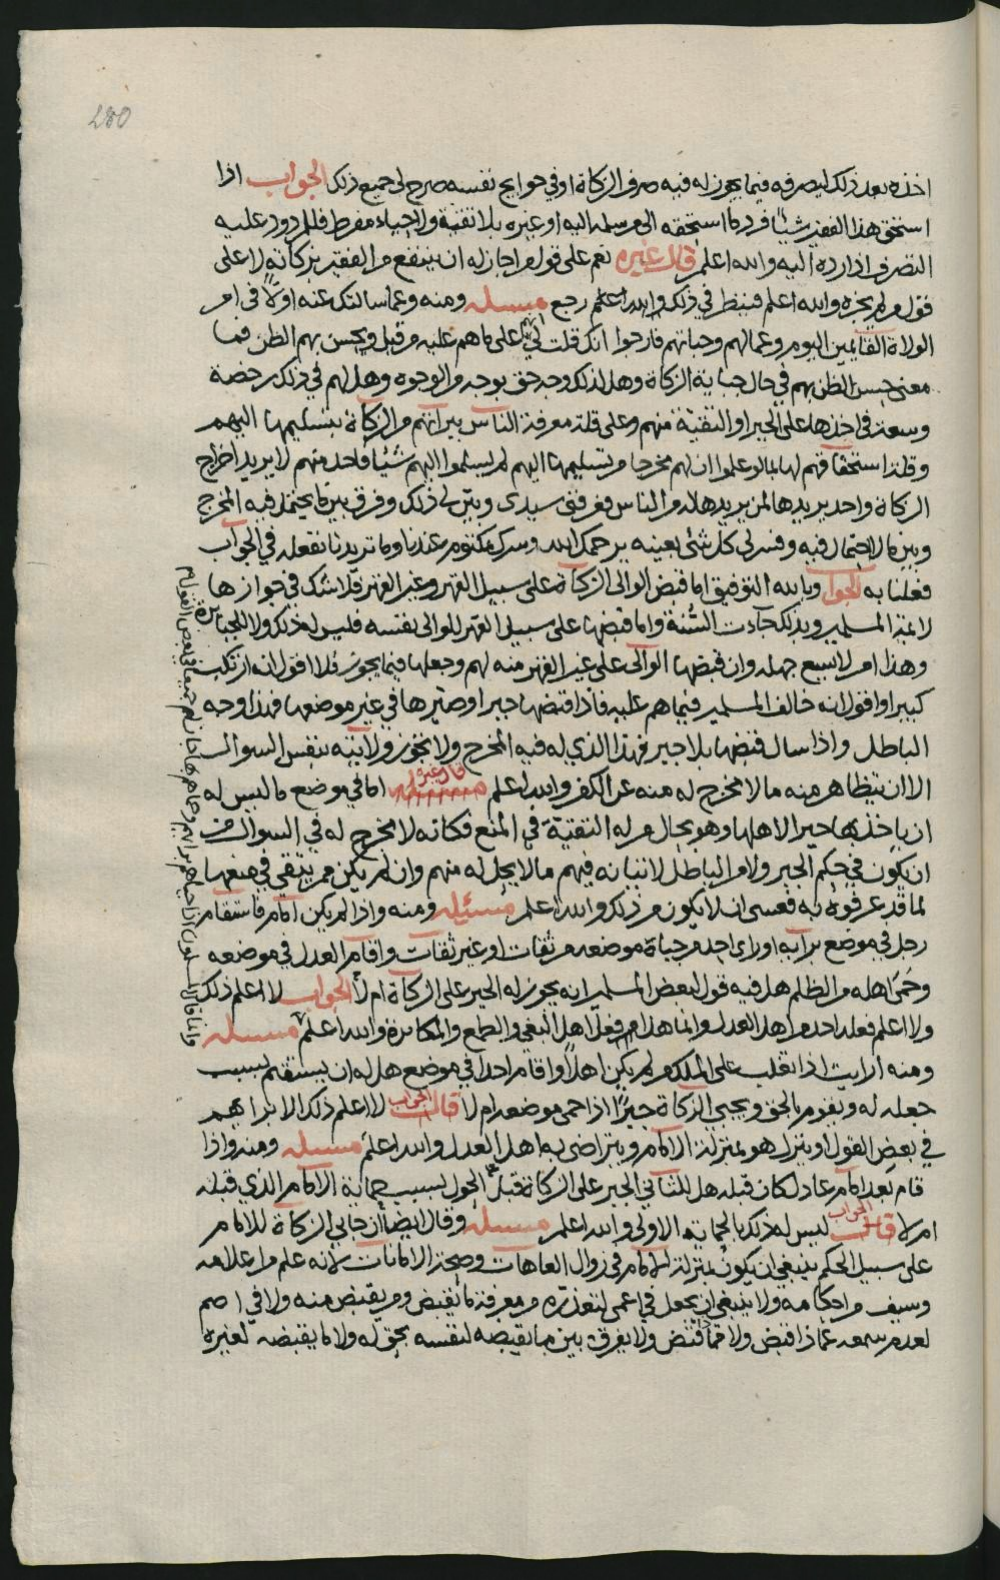 280
اخذه بعد ذلك ليصرفه فيما يجوز له فيه صرف الزكاة او في حوايج نفسه صرح لي جميع ذلك الجواب اذا
استحق هذا الفقير شيئا فرد ما استحقه الى من سلمه اليه او غيره بلا تقية ولا حياء مفرط فللمردود عليه
التصرف اذا رده اليه والله اعلم قال غيره نعم على قول من اجاز له ان ينتفع من الفقير بزكاته لا على
قول من لم يجزه والله اعلم فينظر في ذلك والله اعلم رجع مسئلة ومنه وعما سالتك عنه اولا في امر
الولاة القايمين اليوم وعمالهم وجباتهم فارجوا انك قلت لي انهم على ما هم عليه من قبل ويحسن بهم الظن فما
معنى حسن الظن بهم في حال جباية الزكاة وهل لذلك وجه حق بوجه من الوجوه وهل لهم في ذلك رخصة
وسعة في اخذها على الجبر او التقية منهم وعلى قلة معرفة الناس ببراتهم من الزكاة بتسليمها اليهم
وقلة استحقاقهم لها بما لو علموا ان لهم مخرجا من تسليمها اليهم لم يسلموا اليهم شيئا فاحد منهم لا يريد اخراج
الزكاة واحد يريدها لمن يريدها له من الناس فعرفني سيدي وبين لي ذلك وفرق بين ما يحتمل فيه المخرج
وبين ما لا احتمال فيه وفسر لي كل شئ بعينه يرحمك الله وسرك مكتوم عندنا وما تريدنا نفعله في الجواب
فعلنا به الجواب وبالله التوفيق اما قبض الوالى الزكاة على سبيل القهر وغير القهر فلا شك في جوازها
لايمة المسلمين وبذلك جآءت السُّنة واما قبضها على سبيل القهر للوالي بنفسه فليس له ذلك ولا للجبابرة
وهذا امر لا يسع جهله وان قبضها الوالى على غير القهر منه لهم وجعلها فيما يجوز فلا اقول انه ارتكب
كبيرا واقول انه خالف المسلمين فيما هم عليه فاذا قبضها جبرا وصيرها في غير موضعها فهذا وجه
الباطل واذا سال قبضها بلا جبر فهذا الذي له فيه المخرج ولا تجوز ولايته بنفس السوال
الا ان يتظاهر منه ما لا مخرج له منه عن الكفر والله اعلم قال غيره اما في موضع ما ليس له
ان ياخذها جبرا لاهلها وهو بحال من له التقية في المنع فكانه لا مخرج له في السوال من
ان يكون في حكم الجبر ولا من الباطل لاتيانه فيهم ما لا يحل له منهم وان لم يكن ممن يتقى في منعها
لما قد عرفوه به فعسى ان لا يكون من ذلك والله اعلم مسئلة ومنه واذا لم يكن امام فاستقام
رجل في موضع برايه او راى احد من جباة موضعه من ثقات او غير ثقات واقام العدل في موضعه
وحَمى اهله من الظلم هل فيه قول لبعض المسلمين انه يجوز له الجبر على الزكاة ام لا الجواب لا اعلم ذلك
ولا اعلم فعله احد من اهل العدل وانما هذا من فعل اهل البغي والطمع والمكاثرة والله اعلم مسئلة
ومنه ارايت اذا تغلب على الملك من لم يكن اهلا واقام احدا في موضع هل له ان يستقيم بسبب
جعله له ويقوم بالحق ويجبي الزكاة جبرًا اذا حمى موضعه ام لا قال الجواب لا اعلم ذلك الا برايهم
في بعض القول او ينزل هو بمنزلة الامام ويتراضى به اهل العدل والله اعلم مسئلة ومنه واذا
قام بعد امام عادل كان قبله هل للثاني الجبر على الزكاة قبل الحول بسبب حماية الامام الذي قبله
ام لا قال الجواب ليس له ذلك بالحماية الاولى والله اعلم مسئلة وقال ايضا ان جابي الزكاة للامام
على سبيل الحكم ينبغي ان يكون بمنزلة الامام في زوال العاهات وصحة الامانات لانه علم من اعلامه
وسيف من احكامه ولا ينبغي ان يجعل في اعمى لتعذره من معرفة ما يقبض ومن يقبض منه ولا في اصم
لعدم سمعه عما ذا قبض ولا مما ذا قبض ولا يفرق بين ما يقبضه لنفسه بحق له ولا ما يقبضه لغيره